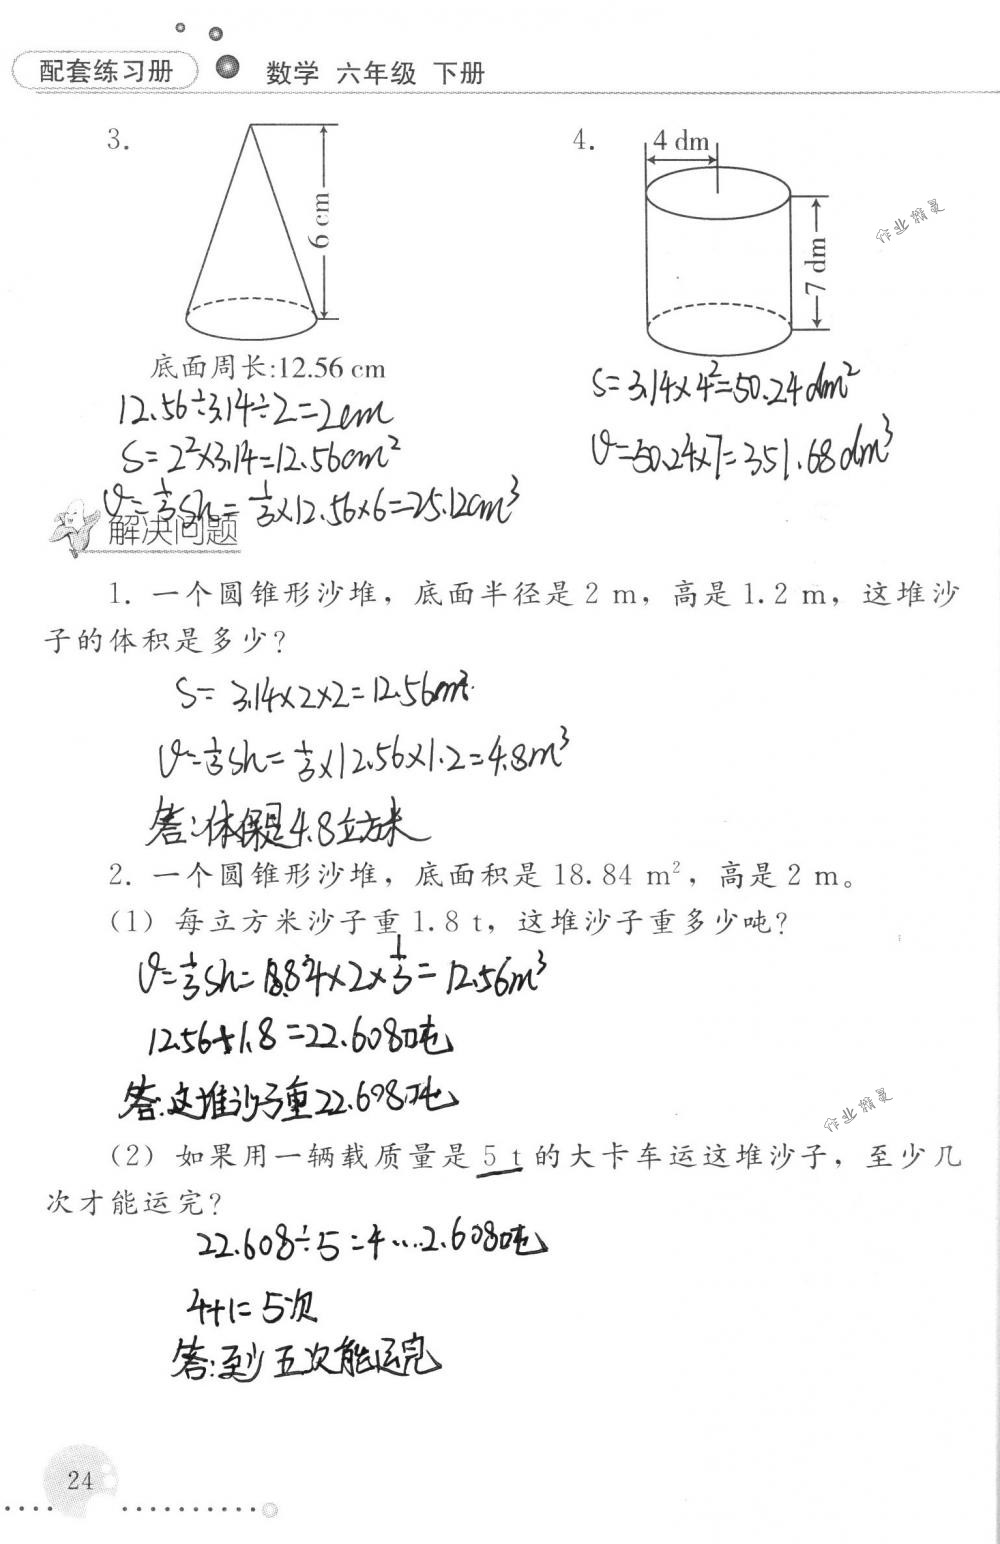 配套练习册 数学 六年级 下册
3.
6 cm
底面周长:12.56 cm
12.56÷3.14÷2=2cm
S=2²×3.14=12.56cm²
V=⅓Sh=⅓×12.56×6=25.12cm³
4.
4 dm
7 dm
S=3.14×4²=50.24dm²
V=50.24×7=351.68dm³
作业精灵
解决问题
1. 一个圆锥形沙堆，底面半径是 2 m，高是 1.2 m，这堆沙
子的体积是多少?
S= 3.14×2×2=12.56m²
V=⅓Sh=⅓×12.56×1.2=4.8m³
答:体积是4.8立方米
2. 一个圆锥形沙堆，底面积是 18.84 m²，高是 2 m。
(1) 每立方米沙子重 1.8 t，这堆沙子重多少吨?
V=⅓Sh=18.84×2×⅓=12.56m³
12.56×1.8=22.608吨
答:这堆沙子重22.608吨
作业精灵
(2) 如果用一辆载质量是 5 t 的大卡车运这堆沙子，至少几
次才能运完?
22.608÷5=4...2.608吨
4+1=5次
答:至少五次能运完
24